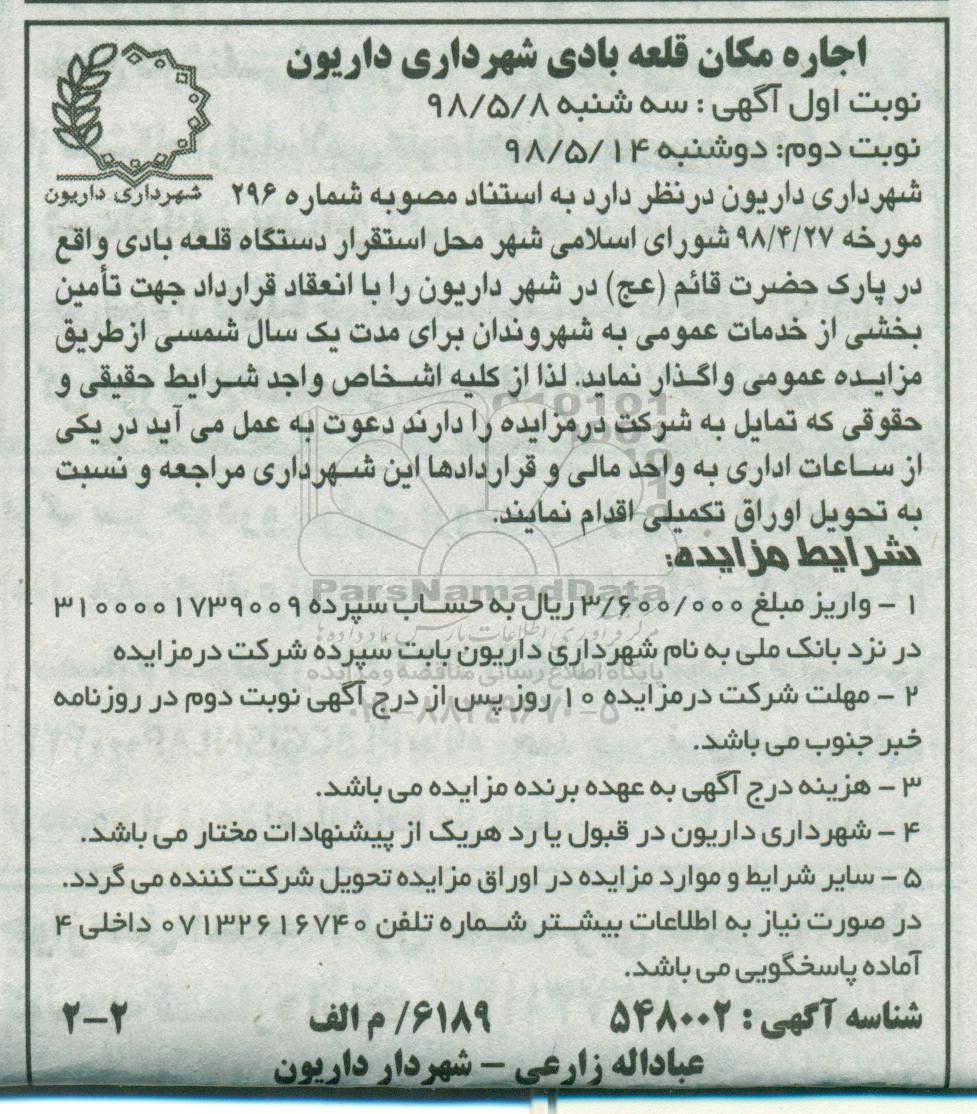 اجاره مکان قلعه بادی شهرداری داریون
نوبت اول آگهی : سه شنبه ۹۸/۵/۸
نوبت دوم: دوشنبه ۹۸/۵/۱۴
شهرداری داریون
شهرداری داریون درنظر دارد به استناد مصوبه شماره ۲۹۶
مورخه ۹۸/۴/۲۷ شورای اسلامی شهر محل استقرار دستگاه قلعه بادی واقع
در پارک حضرت قائم (عج) در شهر داریون را با انعقاد قرارداد جهت تأمین
بخشی از خدمات عمومی به شهروندان برای مدت یک سال شمسی ازطریق
مزایده عمومی واگذار نماید. لذا از کلیه اشخاص واجد شرایط حقیقی و
حقوقی که تمایل به شرکت درمزایده را دارند دعوت به عمل می آید در یکی
از ساعات اداری به واحد مالی و قراردادها این شهرداری مراجعه و نسبت
به تحویل اوراق تکمیلی اقدام نمایند.
شرایط مزایده:
۱ - واریز مبلغ ۳/۶۰۰/۰۰۰ ریال به حساب سپرده ۳۱۰۰۰۰۱۷۳۹۰۰۹
در نزد بانک ملی به نام شهرداری داریون بابت سپرده شرکت درمزایده
۲ - مهلت شرکت درمزایده ۱۰ روز پس از درج آگهی نوبت دوم در روزنامه
خبر جنوب می باشد.
۳ - هزینه درج آگهی به عهده برنده مزایده می باشد.
۴ - شهرداری داریون در قبول یا رد هریک از پیشنهادات مختار می باشد.
۵ - سایر شرایط و موارد مزایده در اوراق مزایده تحویل شرکت کننده می گردد.
در صورت نیاز به اطلاعات بیشتر شماره تلفن ۰۷۱۳۲۶۱۶۷۴۰ داخلی ۴
آماده پاسخگویی می باشد.
شناسه آگهی : ۵۴۸۰۰۲ ۶۱۸۹/ م الف ۲-۲
عباداله زارعی - شهردار داریون
ParsNamadData
پایگاه اطلاع رسانی مناقصه و مزایده